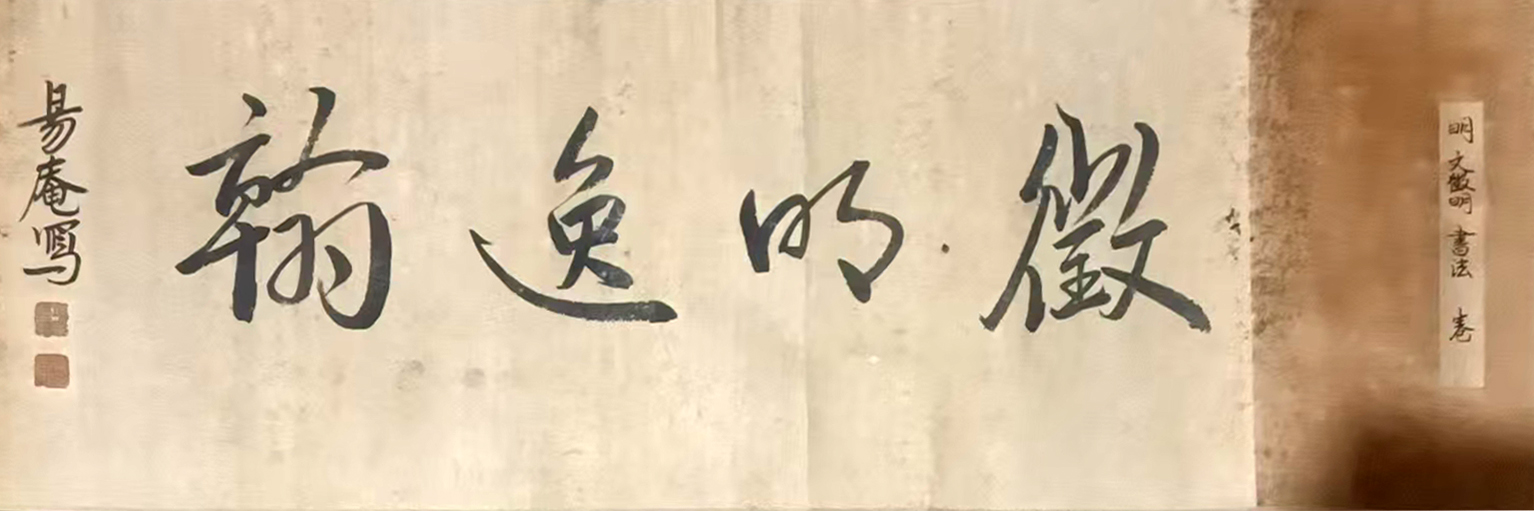 明文徵明書法 卷
徵明逸翰
易庵寫